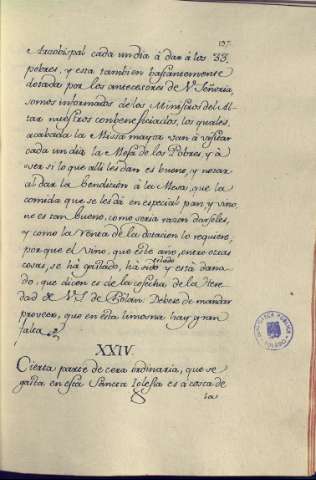 137.
Arzobispal cada un dia á dár á los 33.
pobres, y esta tambien bastantemente
dotada por los antecesores de Vª Señoria,
somos informados de los Ministros del Al-
tar nuestros conbeneficiados, los quales,
acabada la Missa mayor van á visitar
cada un dia la Mesa de los Pobres y à
veer si lo que alli les dan es bueno, y
al dar la bendicion à la Mesa, que la
comida que se les dá en especial pan, y vino
no es tan bueno, como seria razon darseles,
y como la renta de la dotacion lo requiere;
porque el vino, que este año, entre otras
cosas, se há gastado, há sido y está daña-
do, que dicen es de la cosecha de la Here-
dad de V.S. de Deberse de mandar
proveer, que en esta limosna hay gran
falta.
XXIV.
Cierta parte de cera ordinaria, que se
gasta en esta Sancta Iglesia es á costa de
la